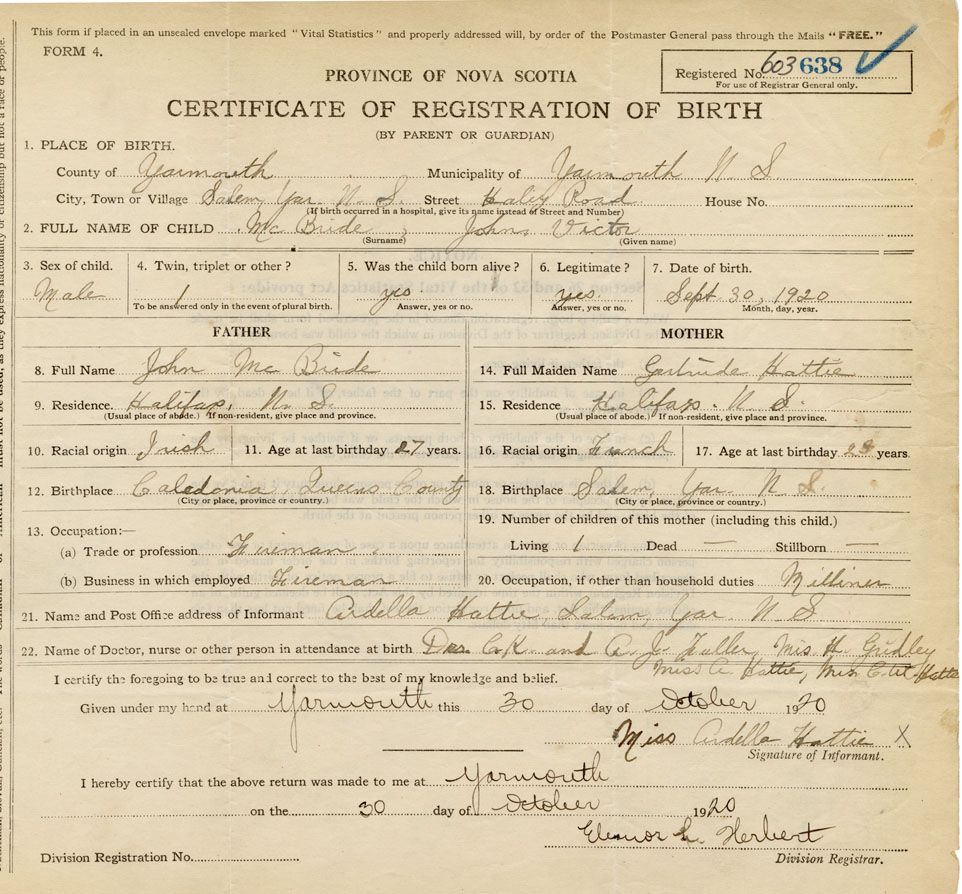 This form if placed in an unsealed envelope marked "Vital Statistics" and properly addressed will, by order of the Postmaster General pass through the Mails "FREE."
FORM 4.
Registered No. 603 638
For use of Registrar General only.
PROVINCE OF NOVA SCOTIA
CERTIFICATE OF REGISTRATION OF BIRTH
(BY PARENT OR GUARDIAN)
1. PLACE OF BIRTH.
County of Yarmouth Municipality of Yarmouth N S
City, Town or Village Salem, Yar. N. S. Street Haley Road House No.
(If birth occurred in a hospital, give its name instead of Street and Number)
2. FULL NAME OF CHILD Mc Bride, John, Victor
(Surname) (Given name)
3. Sex of child. 4. Twin, triplet or other? 5. Was the child born alive? 6. Legitimate? 7. Date of birth.
Male 1 yes. yes. Sept 30, 1920
To be answered only in the event of plural birth. Answer, yes or no. Answer, yes or no. Month, day, year.
FATHER MOTHER
8. Full Name John Mc Bride 14. Full Maiden Name Gertrude Hattie
9. Residence. Halifax, N. S. 15. Residence Halifax. N S.
(Usual place of abode.) If non-resident, give place and province. (Usual place of abode.) If non-resident, give place and province.
10. Racial origin Irish 11. Age at last birthday 27 years. 16. Racial origin French 17. Age at last birthday years.
12. Birthplace Caledonia, Queens County 18. Birthplace Salem, Yar. N S.
(City or place, province or country.) (City or place, province or country.)
13. Occupation:— 19. Number of children of this mother (including this child.)
(a) Trade or profession Fireman. Living 1 Dead — Stillborn —
(b) Business in which employed Fireman 20. Occupation, if other than household duties Milliner
21. Name and Post Office address of Informant Ardella Hattie, Salem, Yar. N S
22. Name of Doctor, nurse or other person in attendance at birth Drs. C.K. and A. J. Fuller, Mis H. Gridley
Miss A Hattie, Hattie
I certify the foregoing to be true and correct to the best of my knowledge and belief.
Given under my hand at Yarmouth this 30 day of October 1920
Miss Ardella Hattie X
Signature of Informant.
I hereby certify that the above return was made to me at Yarmouth
on the 30 day of October 1920
Eleanor L. Herbert
Division Registration No. Division Registrar.